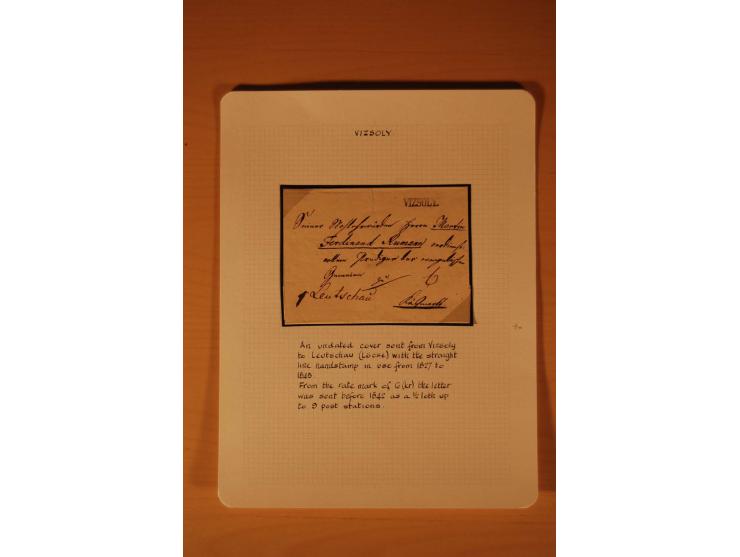 VIZSOLY
VIZSOLY.
Seiner Herrn Martin
Ferdinand
Prediger der evangelischen
zu 6
Leutschau
An undated cover sent from Vizsoly
to Leutschau (Locse) with the straight
line handstamp in use from 1827 to
1848.
From the rate mark of 6(kr) the letter
was sent before 1842 as a ½ loth up
to 9 post stations.